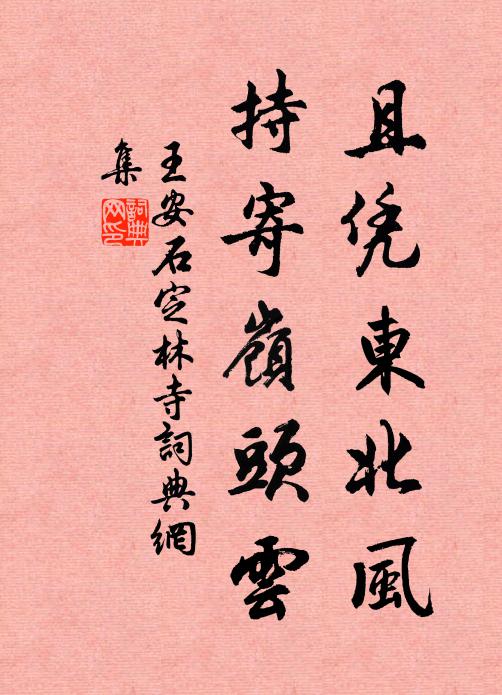 且凭東北風
持寄嶺頭雲
王安石定林寺詞典網
集
詞典
网印